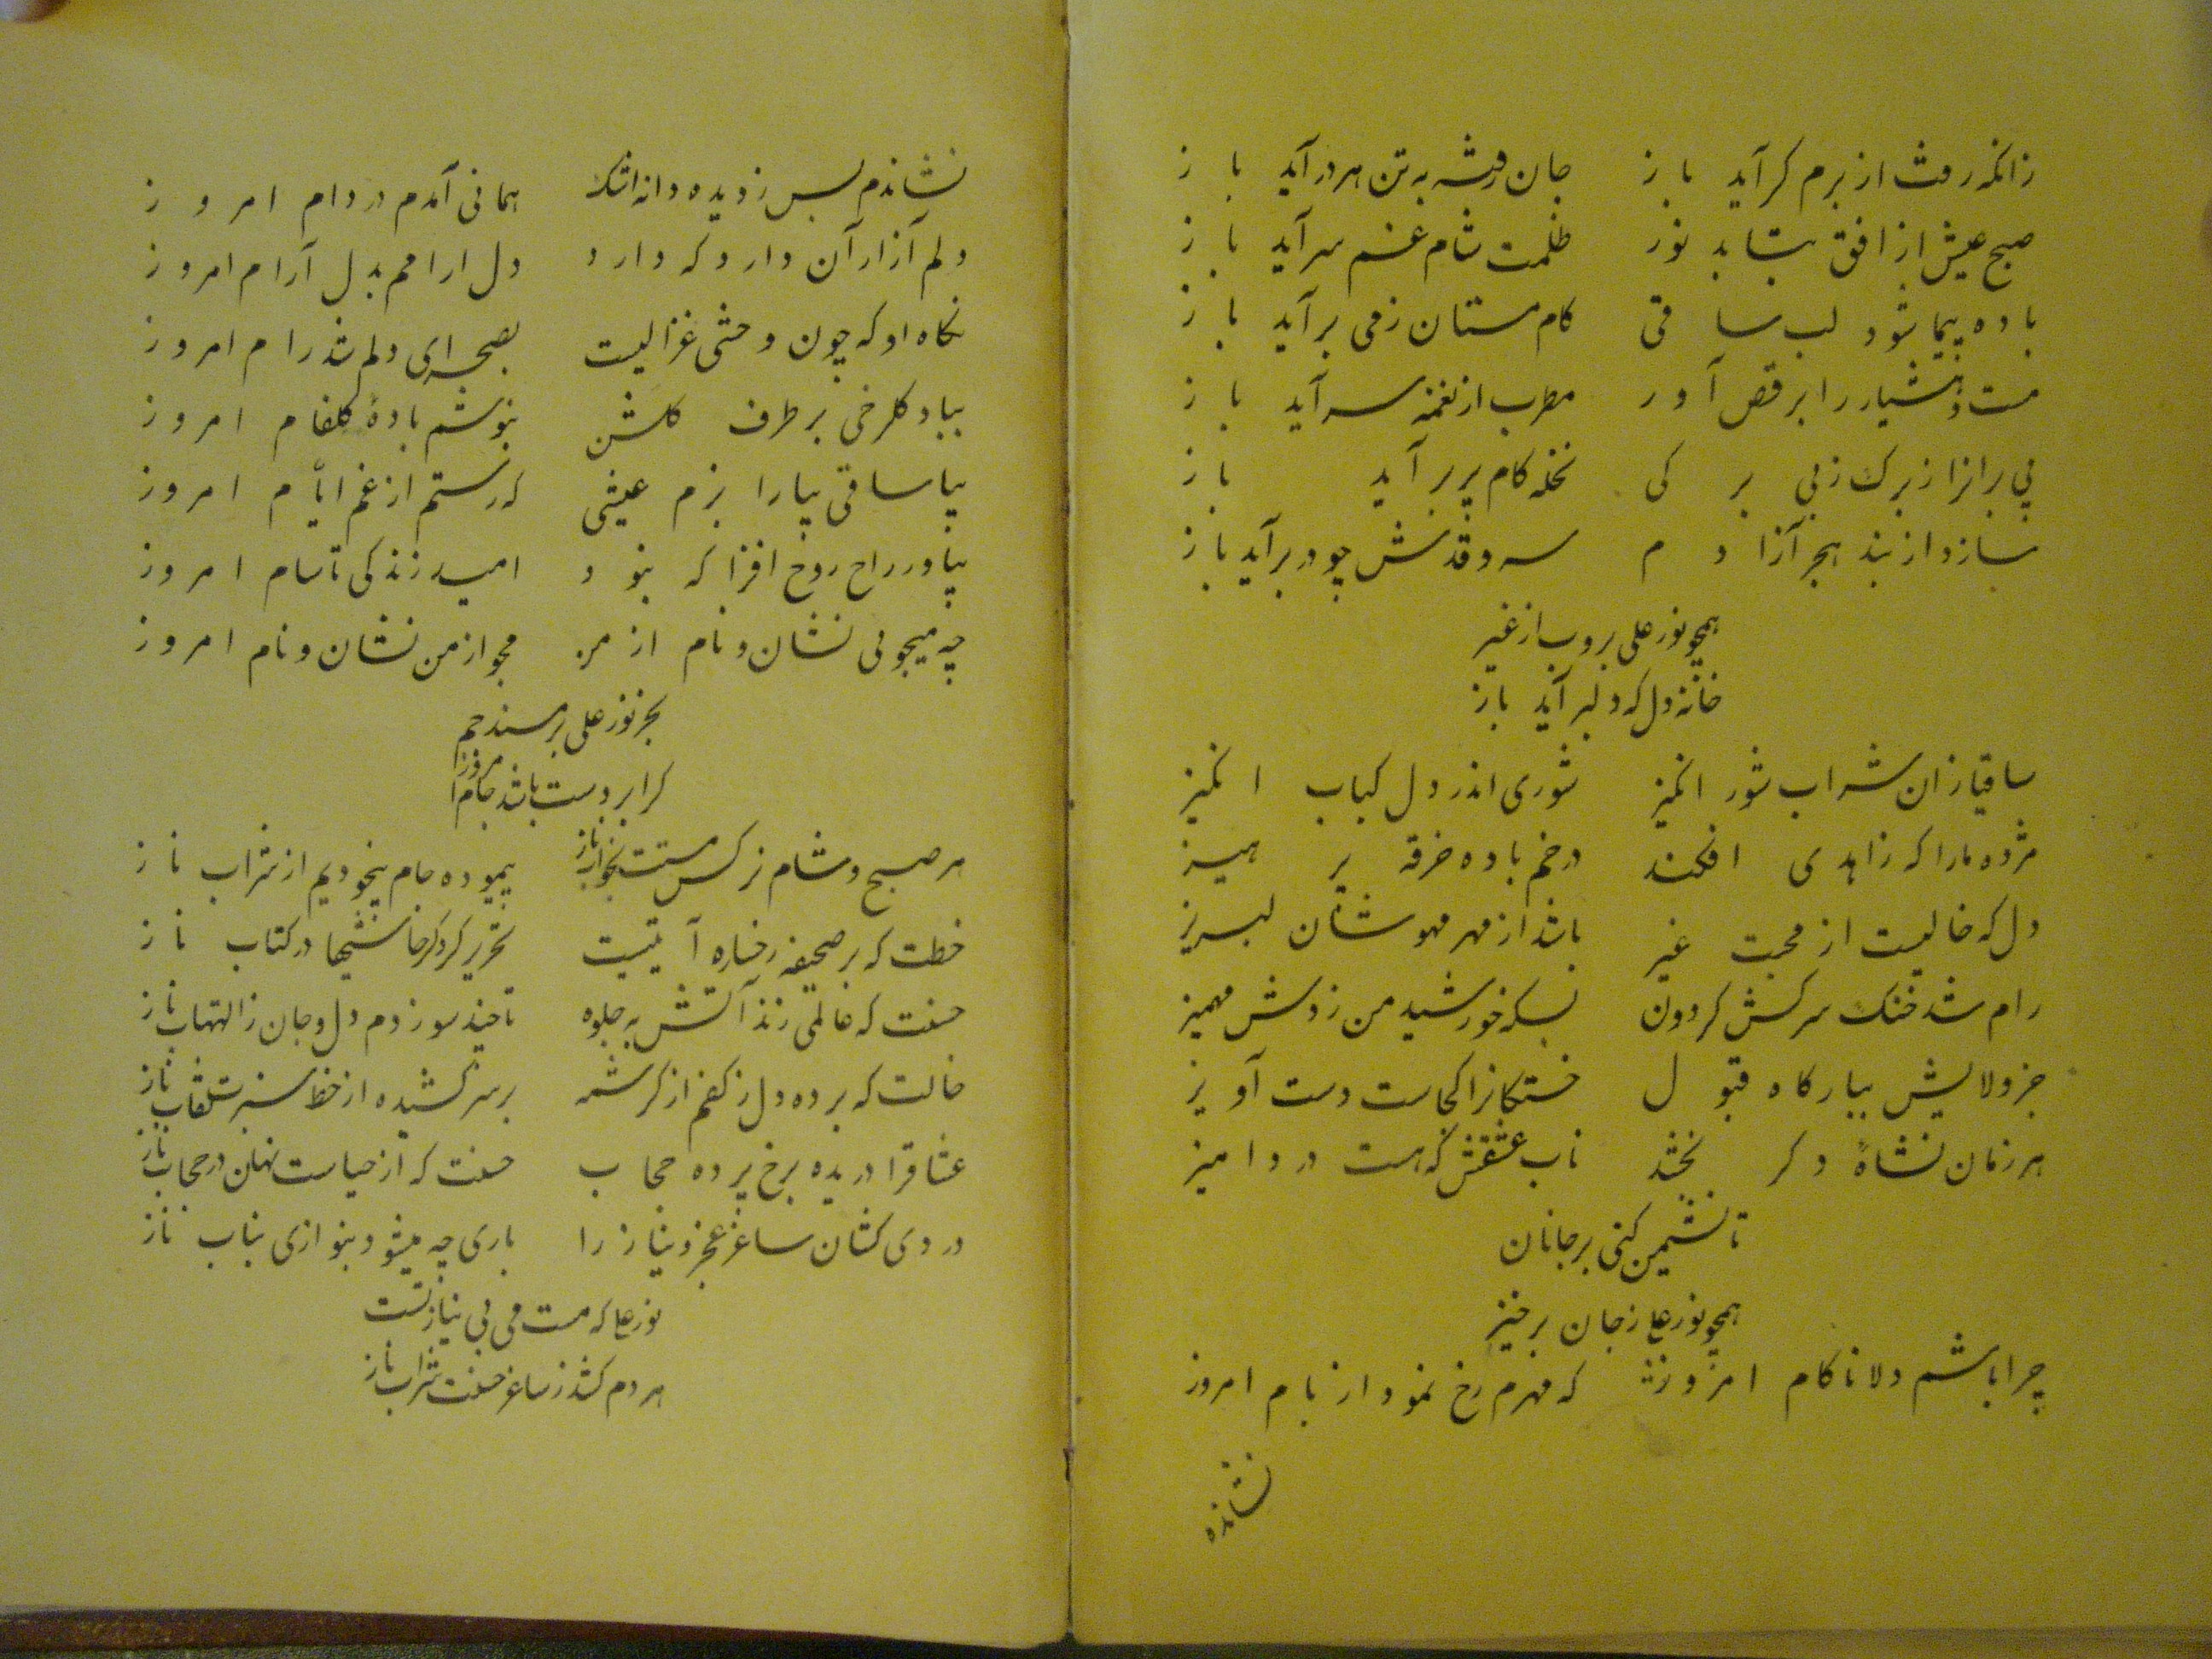 زانکه رفت از برم کر آید باز جان رفته به تن هر در آید باز
صبح عیش از افق بتابد نور ظلمت شام غم سر آید باز
باده پیما شود لب ساقی کام مستان ز می بر آید باز
مست و هشیار را برقص آور مطرب از نغمه سر آید باز
بی برانرا ز برک بی برکی نخله کام پر بر آید باز
سازد از بند هجر آزادم سرو قدش چو در بر آید باز
همچو نور علی بروب از غیر
خانه دل که دلبر آید باز
ساقیا زان شراب شور انکیز شوری اندر دل کباب انکیز
مژده مارا که زاهدی افکند در خم باده خرقه پرهیز
دل که خالیست از محبت غیر باشد از مهر مهوشان لبریز
رام شد خنک سرکش کردون بسکه خورشید من زدش مهمیز
جز ولایش ببارکاه قبول خستکانرا کجاست دست آویز
هر زمان نشاهٔ دکر بخشد ناب عشقش که هست درد امیز
تا نشیمن کنی بر جانان
همچو نور علی ز جان برخیز
چرا باشم دلا ناکام امروز که مهرم رخ نمود از بام امروز
نشانده
نشاندم بس ز دیده دانه اشک همائی آمدم در دام امروز
دلم آزار آن دارد که دارد دل ارامم بدل آرام امروز
نکاه او که چون وحشی غزالیست بصحرای دلم شد رام امروز
بیاد کلرخی بر طرف کلشن بنوشم بادهٔ کلفام امروز
بیا ساقی بیارا بزم عیشی که رستم از غم ایام امروز
بیاور راح روح افزا که نبود امید زندکی تا شام امروز
چه میجوئی نشان و نام از من مجو از من نشان و نام امروز
بجز نور علی بر مسند جم
کرا بر دست باشد جام امروز
هر صبح و شام نرکس مستت بخواب ناز پیموده جام بیخودیم از شراب ناز
خطت که بر صحیفه رخساره آیتیست تحریر کرد کرخا نشیحا در کتاب ناز
حسنت که عالمی زند آتش به جلوه تا چند سوزدم دل و جان ز التهاب ناز
خالت که برده دل ز کفم از کرشمه بر سر کشیده از خط سبزت نقاب ناز
عشاقرا دریده برخ پرده حجاب حسنت که از حیاست نهان در حجاب ناز
دردی کشان ساغر عجز و نیاز را باری چه میشود بنوازی بناب ناز
نور علی که مست می بی نیاز تست
هر دم کشد ز ساغر حسنت شراب ناز